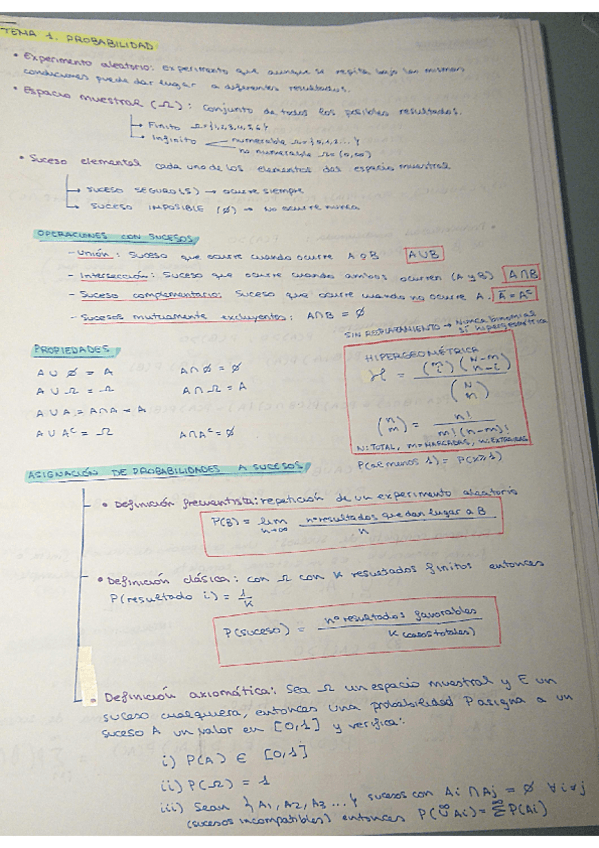 TEMA 1. PROBABILIDAD
• Experimento aleatorio: experimento que aunque se repita bajo las mismas
condiciones puede dar lugar a diferentes resultados.
• Espacio muestral (Ω): conjunto de todos los posibles resultados.
→ Finito Ω={1,2,3,4,5,6}
→ Infinito numerable Ω={0,1,2...}
no numerable Ω=(0,∞)
• Suceso elemental cada uno de los elementos del espacio muestral
→ SUCESO SEGURO(S) → ocurre siempre
→ SUCESO IMPOSIBLE (∅) → No ocurre nunca
OPERACIONES CON SUCESOS
- Unión: Suceso que ocurre cuando ocurre A o B A∪B
- Intersección: Suceso que ocurre cuando ambos ocurren (A y B) A∩B
- Suceso complementario: Suceso que ocurre cuando no ocurre A. Ā = Aᶜ
- Sucesos mutuamente excluyentes: A∩B = ∅
SIN REEMPLAZAMIENTO → Nunca binomias
sí hipergeométrica
PROPIEDADES
A ∪ ∅ = A A∩∅ = ∅
A ∪ Ω = Ω A∩Ω = A
A ∪ A = A∩A = A
A ∪ Aᶜ = Ω A∩Aᶜ = ∅
HIPERGEOMÉTRICA
H = (m i) (N-m n-i) / (N n)
(n m) = n! / m!(n-m)!
N: TOTAL, m= MARCADAS, n: EXTRAIDAS
P(al menos 1) = P(X≥1)
ASIGNACIÓN DE PROBABILIDADES A SUCESOS
• Definición frecuentista: repetición de un experimento aleatorio
P(B) = lim n→∞ nº resultados que dan lugar a B / n
• Definición clásica: con Ω con K resultados finitos entonces
P(resultado i) = 1/K
P(suceso) = nº resultados favorables / K (casos totales)
• Definición axiomática: Sea Ω un espacio muestral y E un
suceso cualquiera, entonces una probabilidad P asigna a un
suceso A un valor en [0,1] y verifica:
i) P(A) ∈ [0,1]
ii) P(Ω) = 1
iii) Sean {A1, A2, A3 ...} sucesos con Ai ∩ Aj = ∅ ∀ i≠j
(sucesos incompatibles) entonces P(∪∞ Ai) = Σ∞ P(Ai)